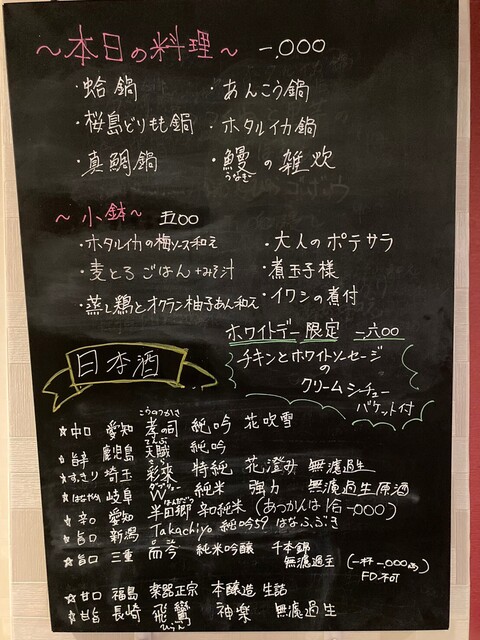 ～本日の料理～ 一,000
・蛤鍋 ・あんこう鍋
・桜島どりもも鍋 ・ホタルイカ鍋
・真鯛鍋 ・鰻の雑炊
うなぎ
～小鉢～ 五00
・ホタルイカの梅ソース和え ・大人のポテサラ
・麦とろごはん+みそ汁 ・煮玉子様
・蒸し鶏とオクラン柚子あん和え ・イワシの煮付
ホワイトデー限定 一六00
チキンとホワイトソーセージ
の
クリームシチュー
バケット付
日本酒
☆中口 愛知 孝の司 純吟 花吹雪
☆旨辛 鹿児島 天賦 純吟
てんぶ
☆すっきり 埼玉 彩來 特純 花澄み 無濾過生
さら
☆はなやか 岐阜 W 純米 強力 無濾過生原酒
ダブリュー
☆辛口 愛知 半田郷 知純米(あつかんは1合一000)
はんだごう
☆旨口 新潟 Takachiyo 純吟59 はなふぶき
☆旨口 三重 而今 純米吟醸 千本錦
無濾過生 (一杯一,000yen)
☆甘口 福島 楽器正宗 本醸造 生詰
☆甘旨 長崎 飛鸞 神楽 無濾過生
ひらん